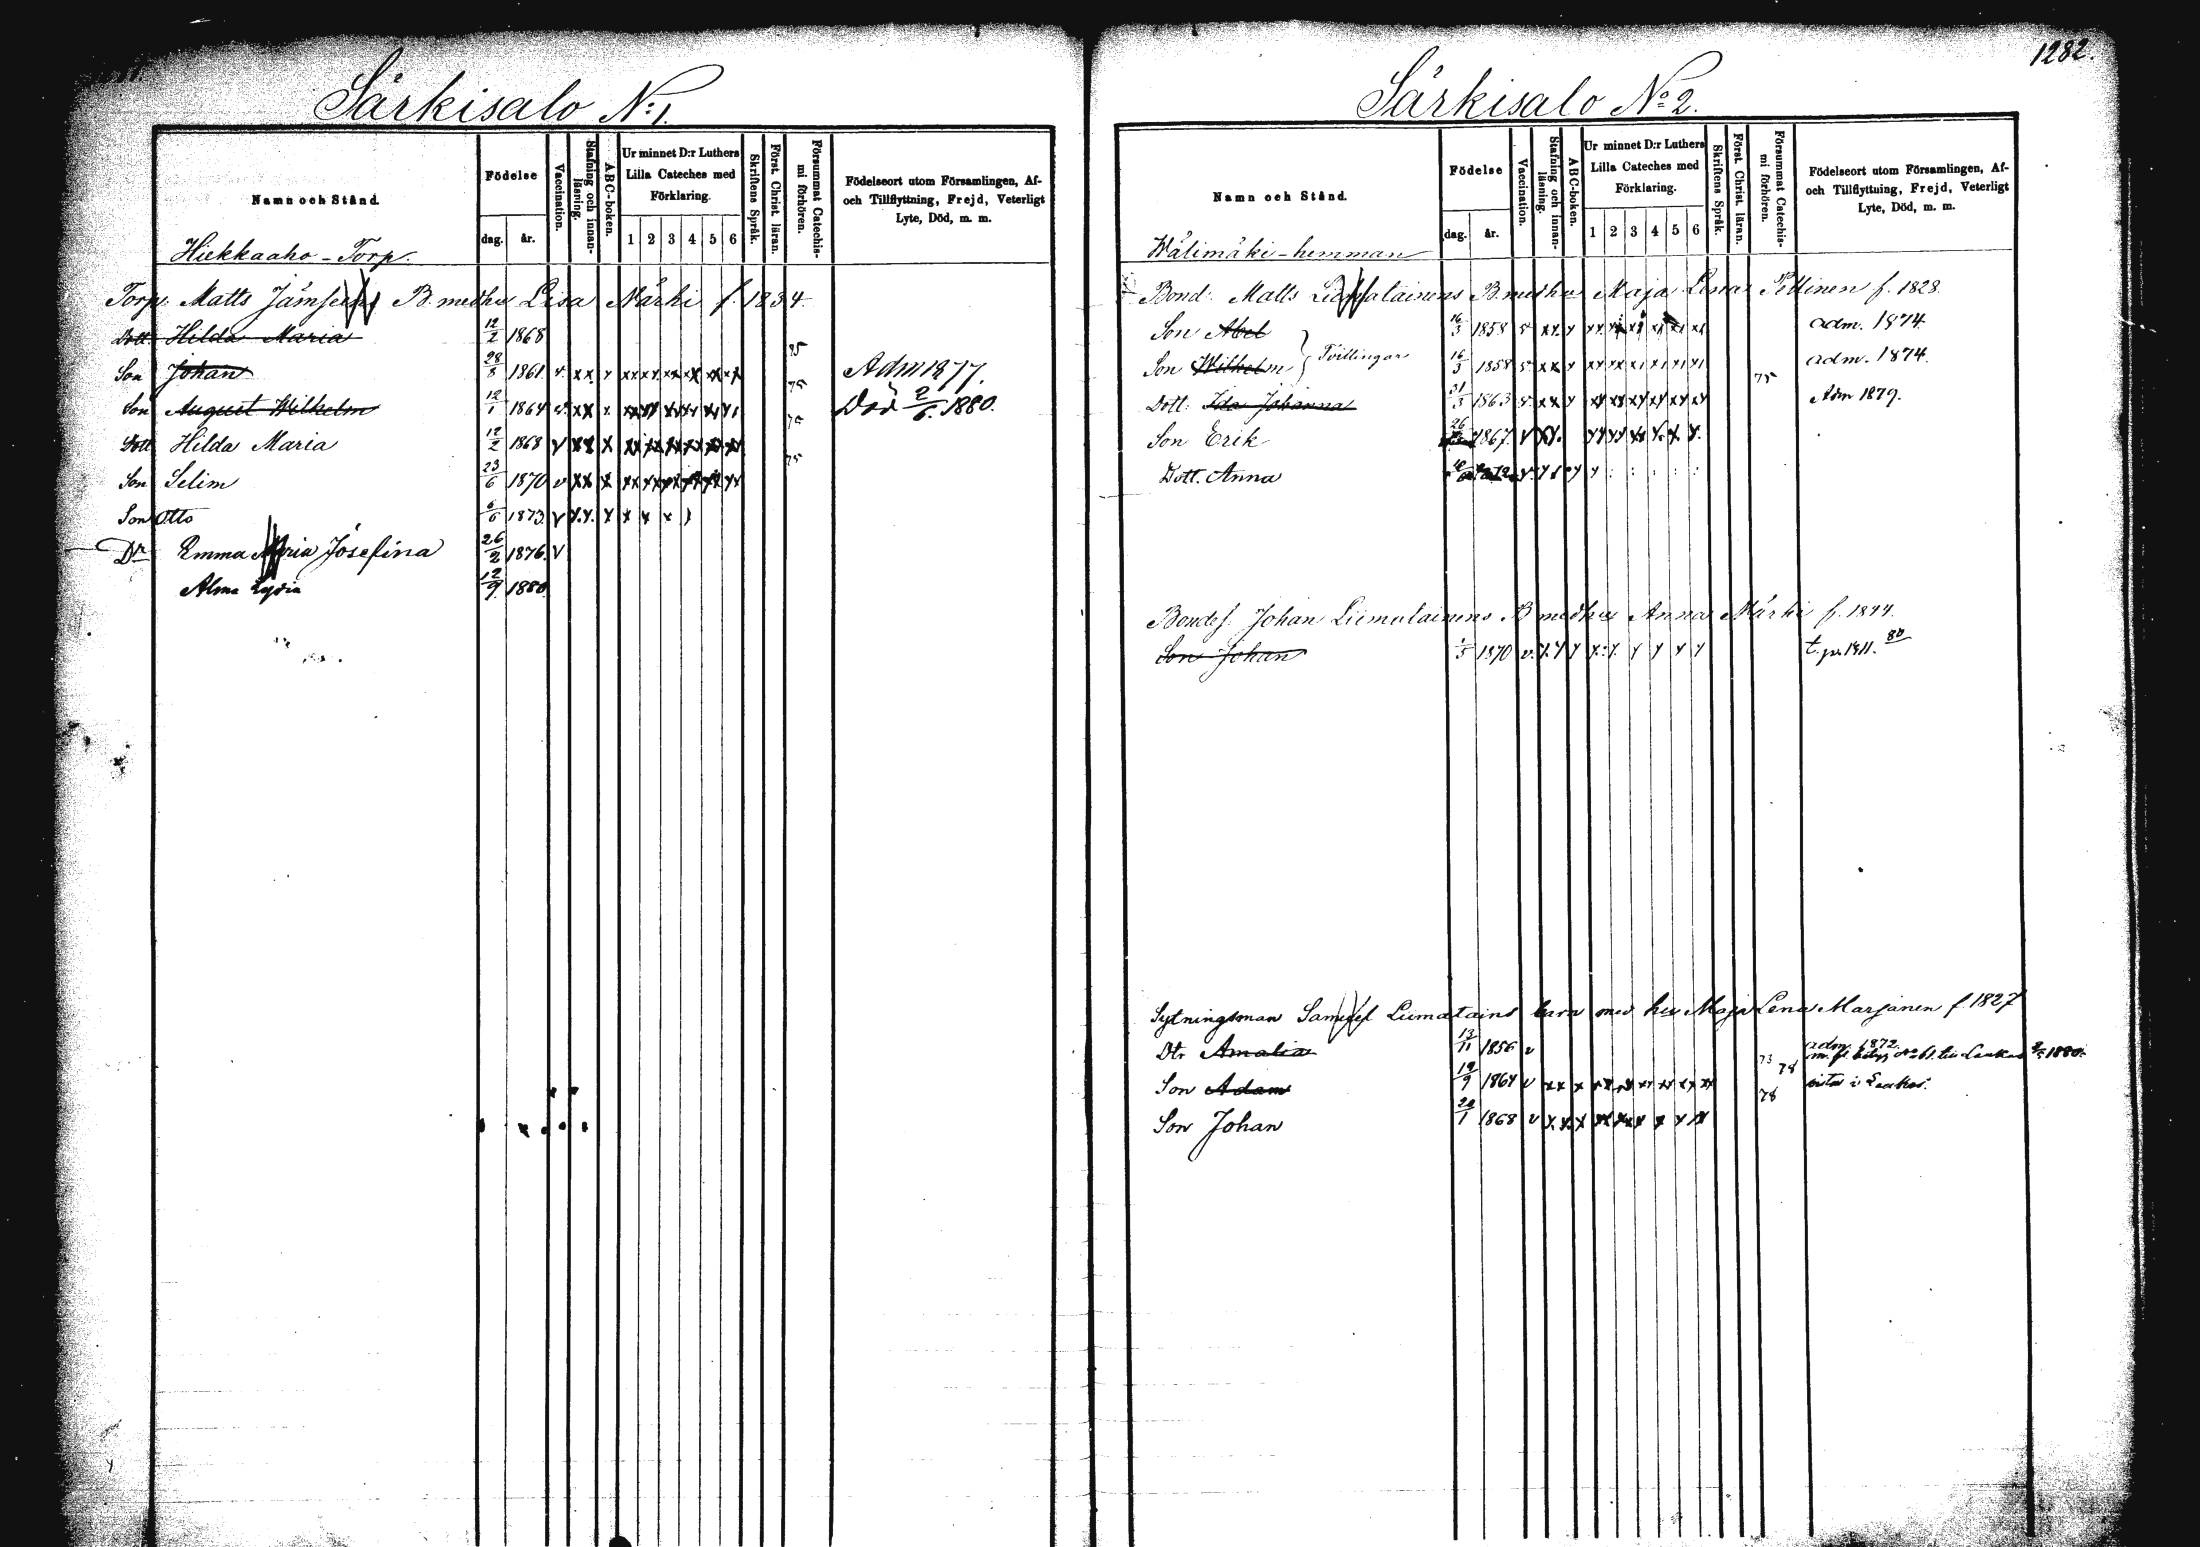 Särkisalo N:1.
Namn och Stånd.
Födelse
dag.
år.
Vaccination.
Stafning och innan-läsning.
ABC-boken.
Ur minnet D:r Luthers Lilla Cateches med Förklaring.
1 2 3 4 5 6
Skriftens Språk.
Först. Christ. läran.
Försummat Catechis-mi förhören.
Födelseort utom Församlingen, Af- och Tillflyttning, Frejd, Veterligt Lyte, Död, m. m.
Hiekkaaho-Torp.
Torp. Matts Jämsens B. med hu Lisa Närhi f. 1834
Dott Hilda Maria 12/2 1868
Son Johan 28/8 1861 v xx x xx xx xx xx xx xx 75 Adm 1877.
Son August Wilhelm 12/1 1864 v xx x 75 Död 2/6 1880.
Dott Hilda Maria 12/2 1868 v xx x
Son Selim 23/6 1870 v xx x 75
Son Otto 6/6 1873 v x.x. x x x x
Dr Emma Maria Josefina 26/2 1876 v
Alma Lydia 12/9 1880
1282.
Särkisalo No 2.
Namn och Stånd.
Födelse
dag.
år.
Vaccination.
Stafning och innan-läsning.
ABC-boken.
Ur minnet D:r Luthers Lilla Cateches med Förklaring.
1 2 3 4 5 6
Skriftens Språk.
Först. Christ. läran.
Försummat Catechis-mi förhören.
Födelseort utom Församlingen, Af- och Tillflyttning, Frejd, Veterligt Lyte, Död, m. m.
Wälimäki-hemman
Bond: Matts Liimatainens B. med hu Maja Lena Pittinen f. 1828.
Son Abel 16/3 1858 adm. 1874
Son Wilhelm } Tvillingar 16/3 1858 adm. 1874.
Dott: Ida Johanna 31/3 1863 75 Adm 1879.
Son Erik 26 1867. v
Dott. Anna
Bondes. Johan Liimatainens B med hu Anna Närhi f. 1844.
Son Johan 1/5 1870 v. t. pa 1811. 80
Sytningsman Samuel Liimatains barn med hu Maja Lena Marjanen f. 1827
Dtr Amalia 13/11 1856 v 73 78 adm. 1872. 1880.
Son Adam 19/9 1864 v 78
Son Johan 20/1 1868 v